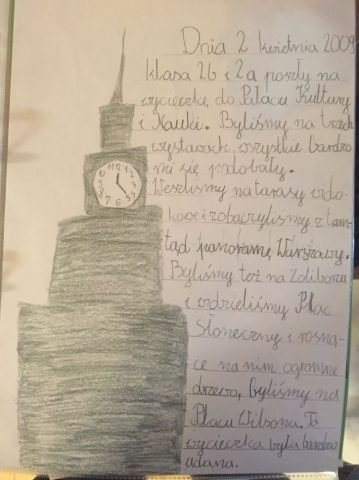 Dnia 2 kwietnia 2009
klasa 2b i 2a poszły na
wycieczkę do Pałacu Kultury
i Nauki. Byliśmy na trzech
wystawach, wszystkie bardzo
mi się podobały.
Weszliśmy na tarasy wido-
kowe i zobaczyliśmy z tam-
tąd panoramę Warszawy.
Byliśmy też na Żoliborzu
i widzieliśmy Plac
Słoneczny i rosną-
ce na nim ogromne
drzewo, byliśmy na
Placu Wilsona. Ta
wycieczka była bardzo
udana.
11 12 1 2 3 4 5 6 7 8 9 10